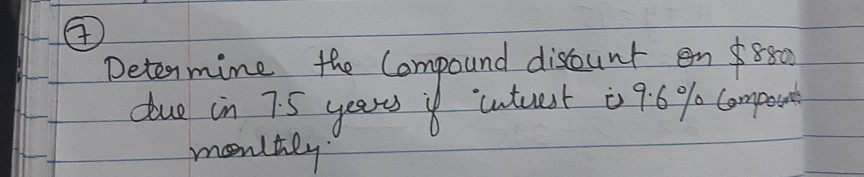 7
Determine the Compound discount on $8800
due in 7.5 years if interest is 9.6% Compound
monthly.